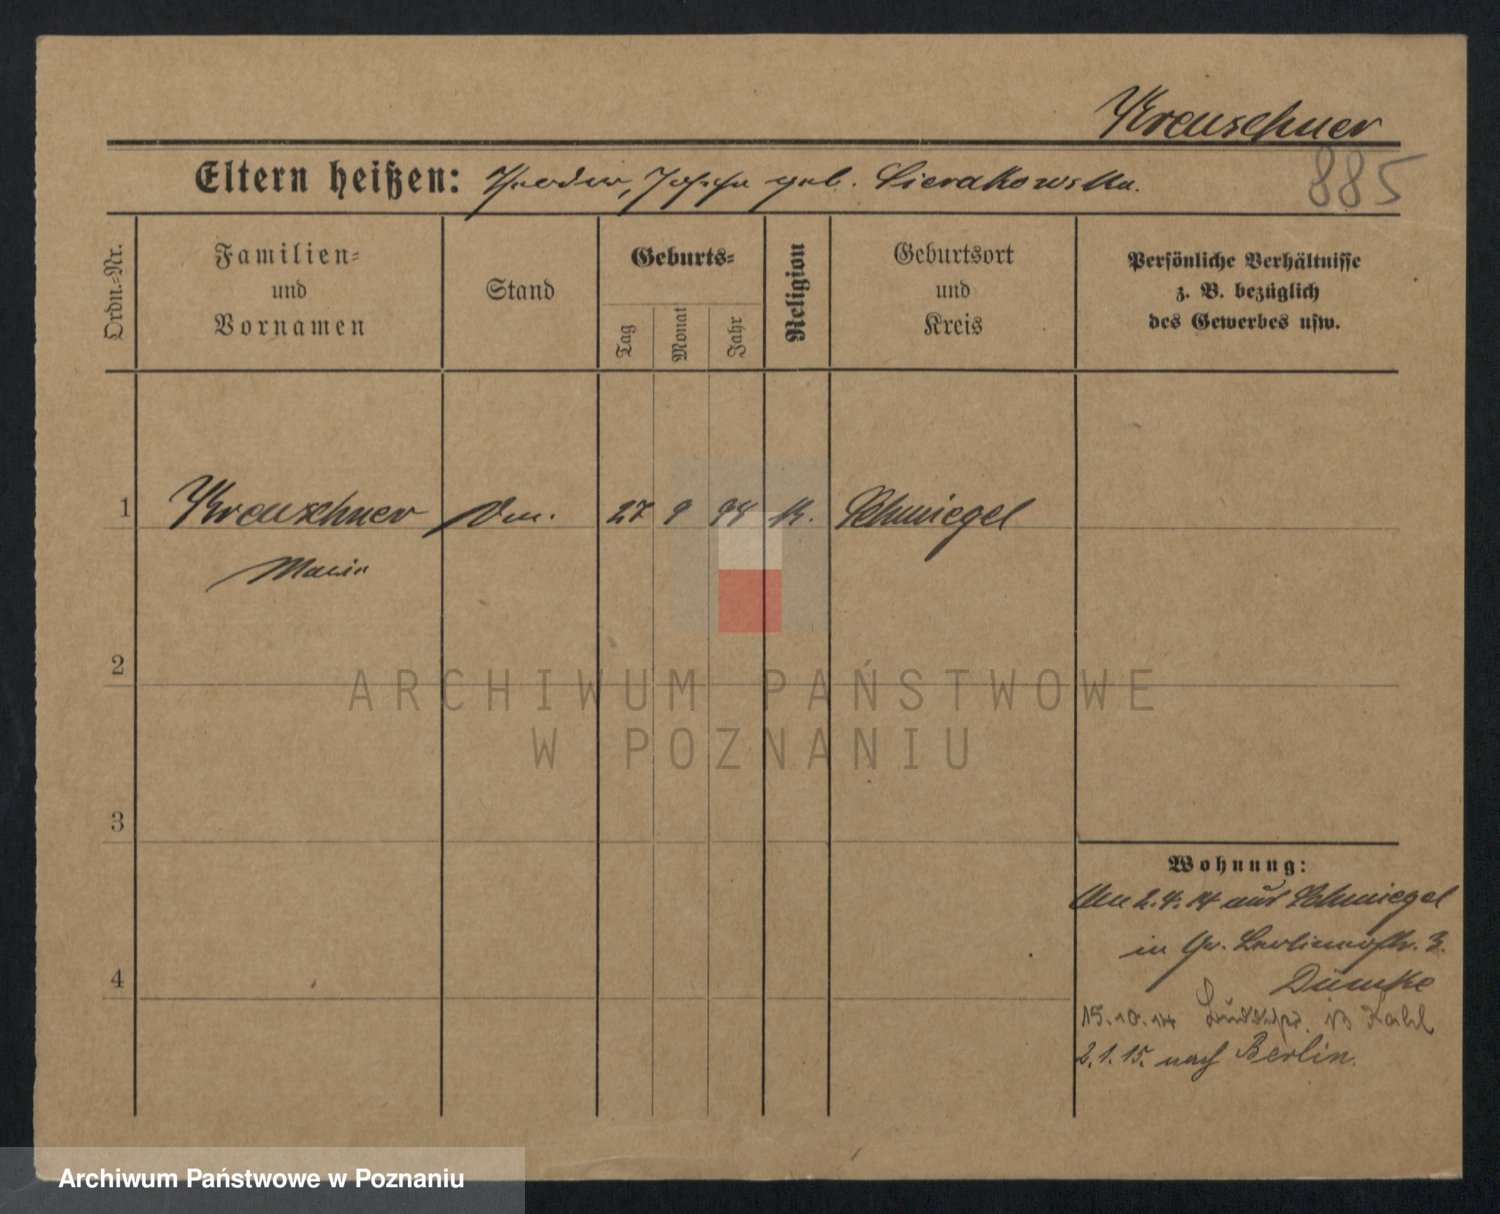 Kreuschner
Eltern heißen: Josefa geb. Sierakowska.
885
Ordn.-Nr.
Familien-
und
Vornamen
Stand
Geburts-
Tag
Monat
Jahr
Religion
Geburtsort
und
Kreis
Persönliche Verhältnisse
z. B. bezüglich
des Gewerbes usw.
1 Kreuschner 27 9 94 K. Schmiegel
Maria
2
ARCHIWUM PAŃSTWOWE
W POZNANIU
3
Wohnung:
2.4.14 aus Schmiegel
in Gr. Berlinerstr. 3.
Dümke
4
15.10.14
2.1.15. nach Berlin.
Archiwum Państwowe w Poznaniu